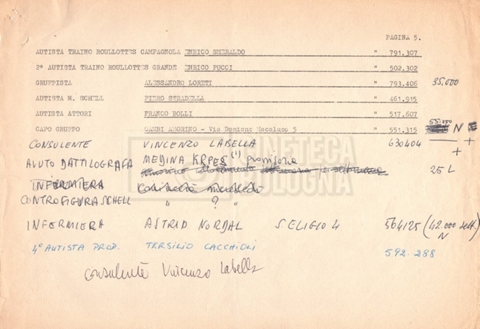 PAGINA 5.
AUTISTA TRAINO ROULLOTTES CAMPAGNOLA ENRICO " 791.307
2ª AUTISTA TRAINO ROULLOTTES GRANDE ENRICO PUCCI " 502.302
GRUPPISTA ALESSANDRO LORETI " 793.406 35.000
AUTISTA M. SCHELL PIERO STRABELLA " 461.515
AUTISTA ATTORI FRANCO BOLLI " 517.607
CAPO GRUPPO AMORINO - Via 5 " 551.315 N
CONSULENTE VINCENZO LABELLA 630404 +
AIUTO DATTILOGRAFA MEDINA 25 L
INFERMIERA
CONTROFIGURA SCHELL " ? "
INFERMIERA ASTRID NORDAL SELIGIO 4 564125 (42.000 sett.
N
4° AUTISTA PROD. TERSILIO CACCHIOLI 592-288
Consulente Vincenzo Labella
CINETECA
BOLOGNA